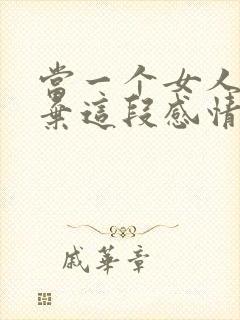 當一个女人
棄這段感情
戚華章